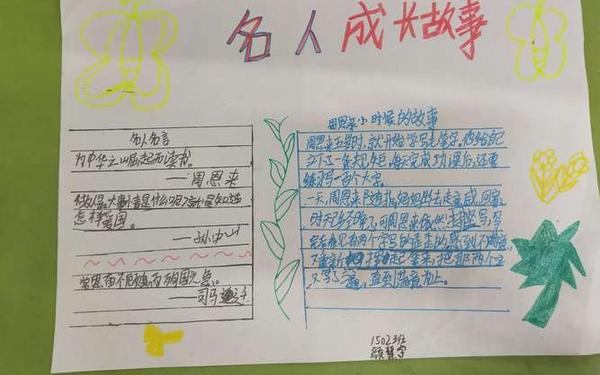 名人成长故事
名人名言
为中华之崛起而读书。
——周恩来
做人最大的事是什么呢?就是知道
怎样爱国。
——孙中山
常思奋不顾身,而殉国家之急。
——司马迁
周恩来小时候的故事
周恩来五岁时,就开始学写毛笔字。他给自己
立下了一条规矩:每天完成功课后,还要
练习写一百个大字。
一天,周恩来随
妈妈出去走亲戚,回家
时,可周恩来依然坚持写
完看见有两个字写的歪歪的,感到不满意,
又重新拿起笔来把那两个字
又写了遍,直到满意为止。
1502班